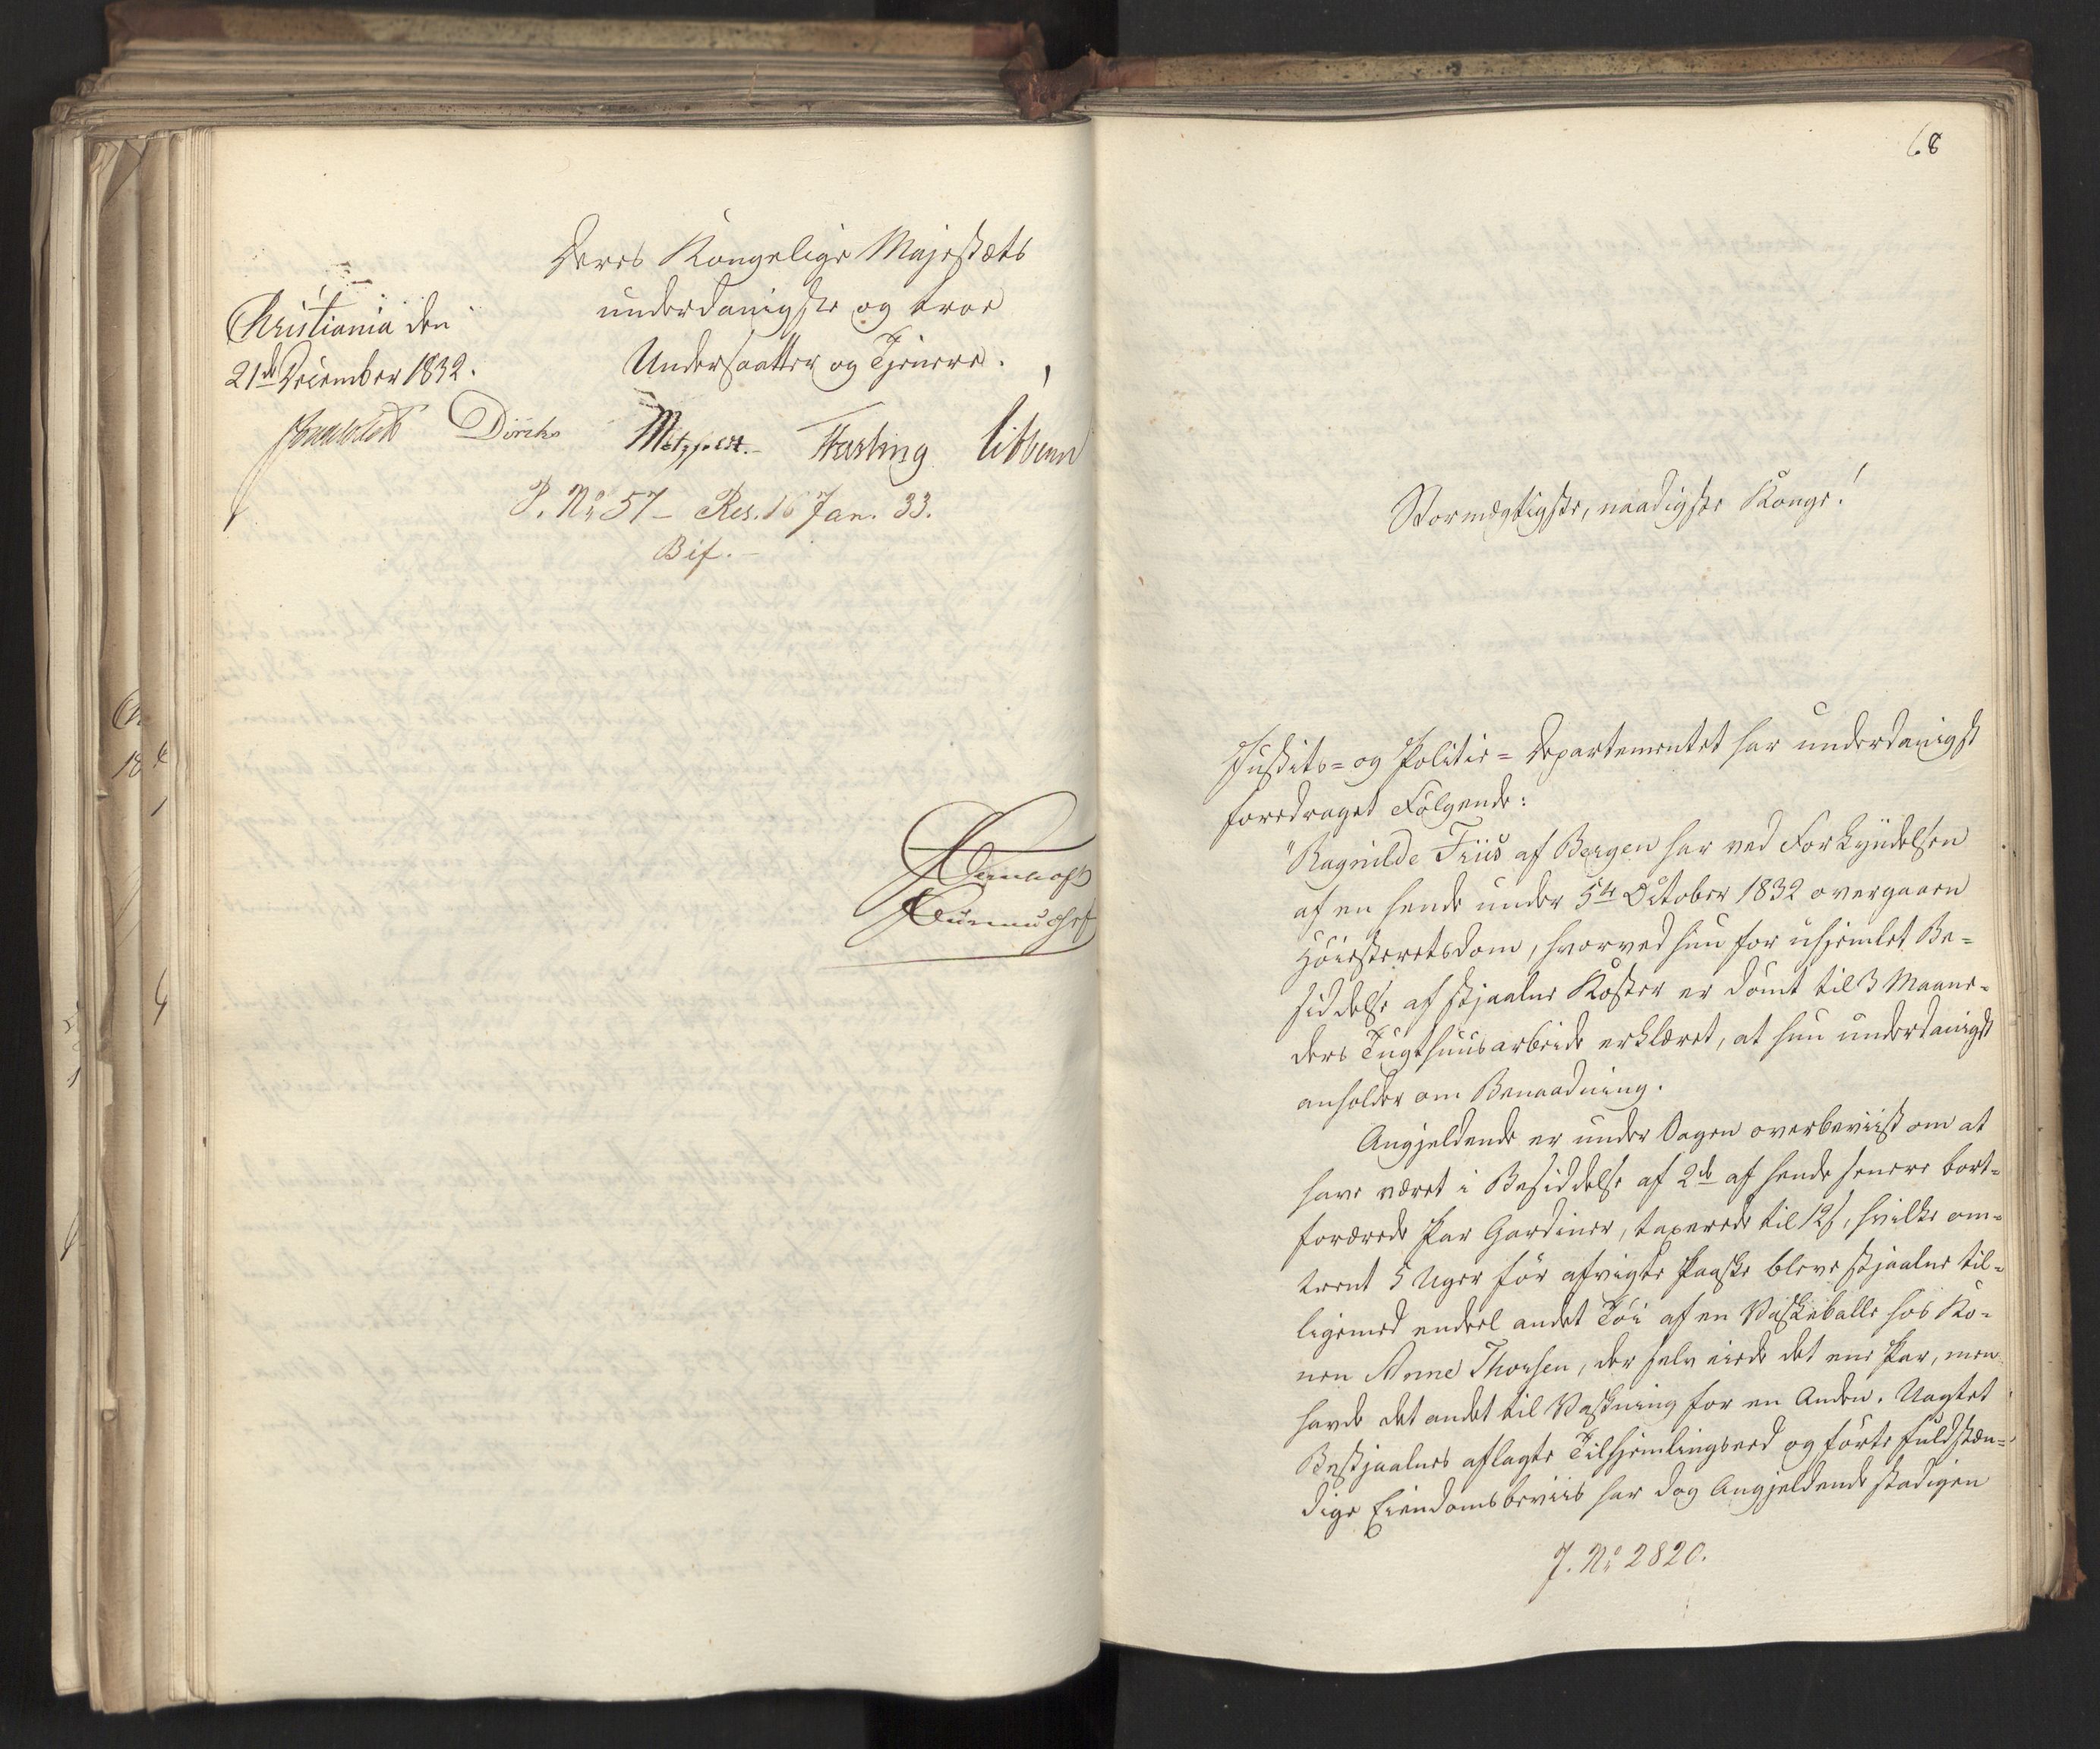 Deres Kongelige Majestæts
underdanigste og troe
Undersaatter og Tjenere.
Christiania den
21de December 1832.
Diriks Motzfeldt. Fasting
P. No 57 - Res. 16 Jan. 33.
Bif. -
68
Stormægtigste, naadigste Konge!
Justits- og Politie-Departementet har underdanigst
foredraget Følgende:
"Ragnilde Friis af Bergen har ved Forkyndelsen
af en hende under 5te October 1832 overgaaen
Høiesteretsdom, hvorved hun for uhjemlet Be-
siddelse af stjaalne Koster er dømt til 3 Maane-
ders Tugthuusarbeide erklæret, at hun underdanigst
anholder om Benaadning.
Angjeldende er under Sagen overbeviist om at
have været i Besiddelse af 2de af hende senere bort-
forærede Par Gardiner, taxerede til 12 ß, hvilke om-
trent 5 Uger før afvigte Paaske bleve stjaalne til-
ligemed endeel andet Tøi af en Vaskeballe hos Ko-
nen Anne Thorsen, der selv eiede det ene Par, men
havde det andet til Vaskning for en Anden. Uagtet
Bestjaalnes aflagte Tilhjemlingseed og førte fuldstæn-
dige Eiendomsbeviis har dog Angjeldende stadigen
J. No 2820.